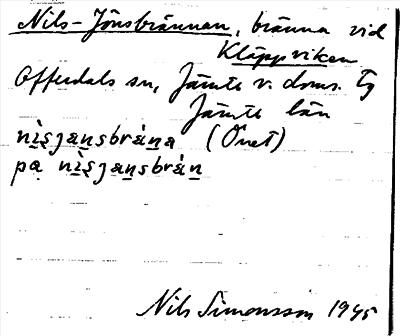 Nils-Jönsbrännan, bränna vid
Kläppviken
Offerdals sn, Jämte v. doms. tg
Jämte län
nìsjansbràna (Önet)
pa nìsjansbràn
Nils Simonsson 1945